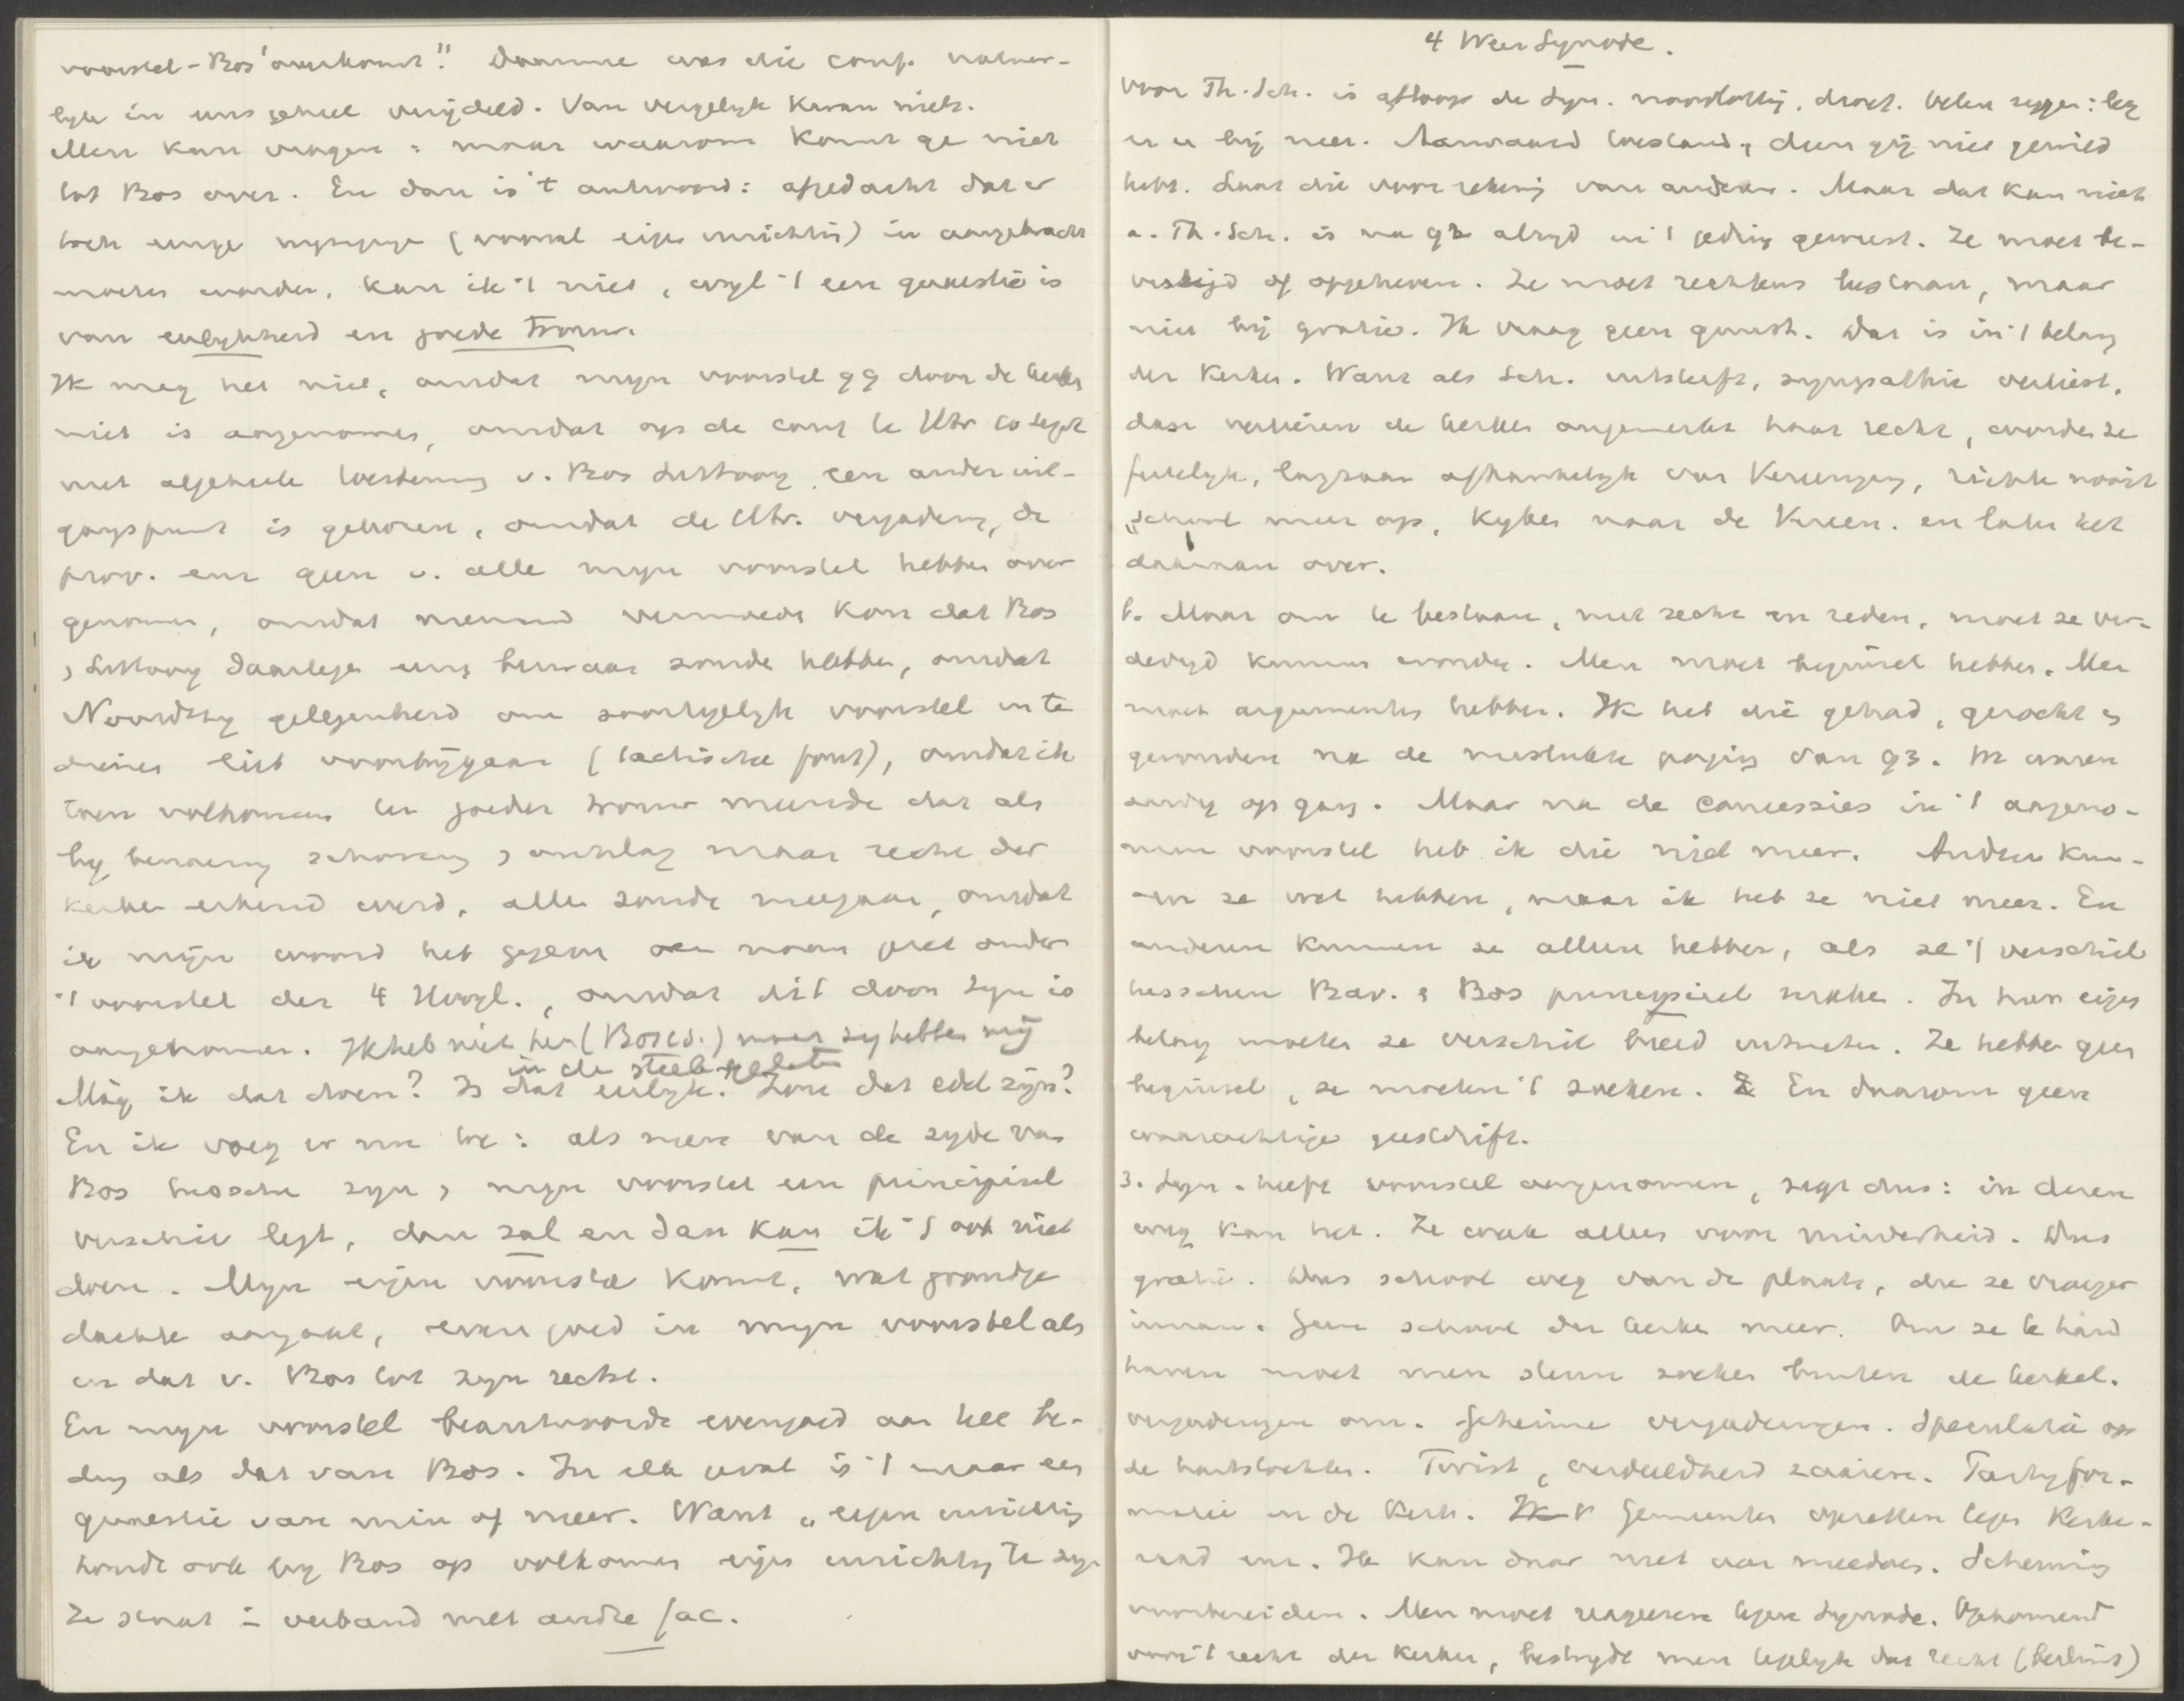 voorstel-Bos overkomt". Daarmee was die conf. natuur-
lyk in eens geheel verijdeld. Van vergelyk kwam niets.
Men kan vragen: maar waarom komt ge niet
tot Bos over. En dan is 't antwoord: afgedacht dat er
toch enige wyziging (vooral eigen inrichtis) in aangebracht
moeten worden, kan ik 't niet, wyl 't een quaestie is
van eerlykheid en goede trouw.
Ik mag het niet, omdat myn voorstel 99 door de kerken
niet is aangenomen, omdat op de conf te Utr 10 Sept
met algeheele toestemming v. Bos Littooy een ander uit-
gangspunt is gekozen, omdat de Utr. vergadering, de
prov. enz geen v. alle myn voorstel hebben over
genomen, omdat niemand vermoeden kon dat Bos
, Littooy daartegen enig bezwaar zoude hebben, omdat
Noordtzy gelegenheid om soortgelyk voorstel in te
dienen liet voorbijgaan (tactische fout), omdat ik
toen volkomen ter goeder trouw meende dat als
by benoeming schorsing, ontslag maar recht der
kerken erkend werd, allen zoude meegaan, omdat
ik mijn woord heb gegeven en naam gezet onder
't voorstel der 4 Hoogl., omdat dit door Syn is
aangenomen. Ik heb niet hen (Bos cs.) maar zy hebben mij
in de steek gelaten
Mág ik dat doen? Is dat eerlyk? Zou dat edel zijn?
En ik voeg er nu toe: als men van de zyde van
Bos tusschen zyn, myn voorstel een principieel
verschil legt, dan zal en dan kan ik 't ook niet
doen. Myn eigen voorstel komt, wat grondge
dachte aangaat, even goed in myn voorstel als
in dat v. Bos tot zyn recht.
En myn voorstel beantwoordde evengoed aan het be-
ding als dat van Bos. In elk geval is 't maar een
quaestie van min of meer. Want „eigen inrichting
houdt ook by Bos op volkomen eigen inrichting te zyn
Ze staat in verband met andre fac.
4 Weer Synode.
Voor Th. Sch. is afloop de Syn. noodlottig, droef. Velen zeggen: leg
er u bij neer. Aanvaard toestand, dien gij niet gewild
hebt. Laat die voor rekening van anderen. Maar dat kan niet
a. Th. Sch. is na 92 altyd in 't geding geweest. Ze moet be-
vestigd of opgeheven. Ze moet rechtens bestaan, maar
niet bij gratie. Ik vraag geen gunst. Dat is in 't belang
der kerken. Want als Sch. uitsterft, sympathie verliest,
dan verliezen de kerken ongemerkt haar recht, worden ze
feitelyk, langzaam afhankelyk van Vereeniging, richten nooit
„school meer op, kyken naar de Vereen. en laten het
daaraan over.
b. Maar om te bestaan, met recht en reden, moet ze ver-
dedigd kunnen worden. Men moet beginsel hebben. Men
moet argumenten hebben. Ik heb die gehad, gezocht en
gevonden na de mislukte poging van 93. Er waren
aardig op gang. Maar na de concessies in 't aangeno-
men voorstel heb ik die niet meer. Andren kun-
nen ze wel hebben, maar ik heb ze niet meer. En
anderen kunnen ze alleen hebben, als ze 't verschil
tusschen Bav. & Bos principieel maken. In hun eigen
belang moeten ze verschil breed uitmeten. Ze hebben geen
beginsel, ze moeten 't zoeken. En daarom geen
waarachtige geestdrift.
3. Syn. heeft voorstel aangenomen, zegt dus: in deren
weg kan het. Ze week alleen voor minderheid. Dus
gratie. Dus school weg van de plaats, die ze vroeger
innam. Geen school der kerken meer. Om ze te hand
haven moet men steun zoeken buiten de kerkel.
vergaderingen om. Geheime vergaderingen. Speculatie op
de hartstochten. Twist, verdeeldheid zaaien. Partyfor-
matie in de Kerk. Gemeenten opzetten tegen Kerke-
raad enz. Ik kan daar niet aan meedoen. Scheuring
voorbereiden. Men moet reageeren tegen Synode. Opkomend
voor 't recht der kerken, bestrydt men tegelyk dat recht (berlins)